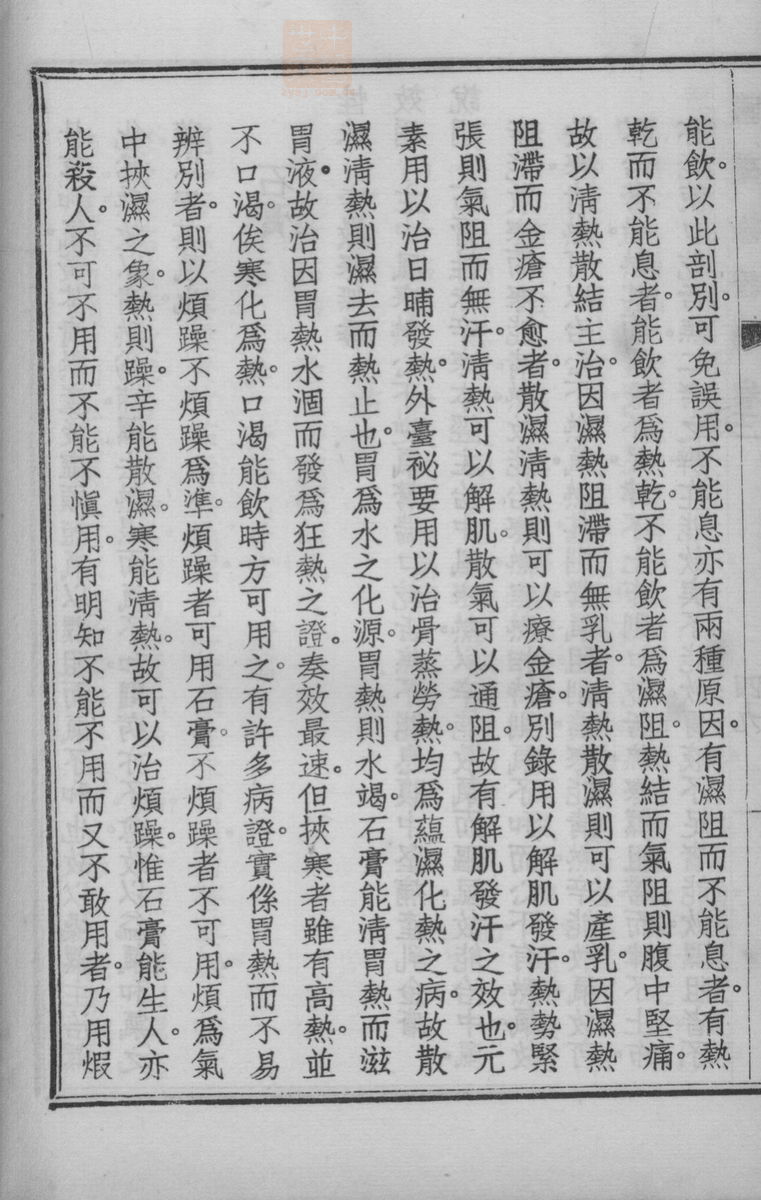 能飲。以此剖別。可免誤用。不能息亦有兩種原因。有濕阻而不能息者。有熱
乾而不能息者。能飲者爲熱乾。不能飲者爲濕阻。熱結而氣阻則腹中堅痛。
故以淸熱散結主治。因濕熱阻滯而無乳者。淸熱散濕則可以產乳。因濕熱
阻滯而金瘡不愈者。散濕淸熱則可以療金瘡。別錄用以解肌發汗。熱勢緊
張則氣阻而無汗。淸熱可以解肌。散氣可以通阻。故有解肌發汗之效也。元
素用以治日晡發熱。外臺祕要用以治骨蒸勞熱。均爲蘊濕化熱之病。故散
濕淸熱則濕去而熱止也。胃爲水之化源。胃熱則水竭。石膏能淸胃熱而滋
胃液。故治因胃熱水涸而發爲狂熱之證。奏效最速。但挾寒者雖有高熱。並
不口渴。俟寒化爲熱。口渴能飲時方可用之。有許多病證。實係胃熱而不易
辨別者。則以煩躁不煩躁爲準。煩躁者可用石膏。不煩躁者不可用。煩爲氣
中挾濕之象。熱則躁。辛能散濕。寒能淸熱。故可以治煩躁。惟石膏能生人。亦
能殺人。不可不用而不能不愼用。有明知不能不用而又不敢用者。乃用煆